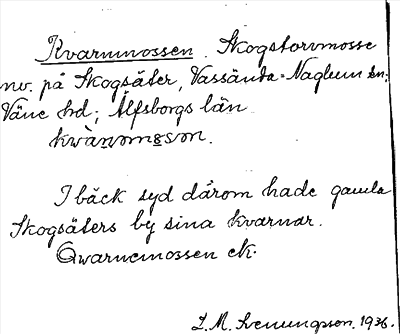 Kvarnmossen. Skogstorvmosse
nv. på Skogsäter, Vassända-Naglum sn,
Väne hd; Älfsborgs län
kwànomsson.
I bäck syd därom hade gamla
Skogsäters by sina kvarnar.
Qwarnemossen ek.
L. M. Svenungsson. 1936.